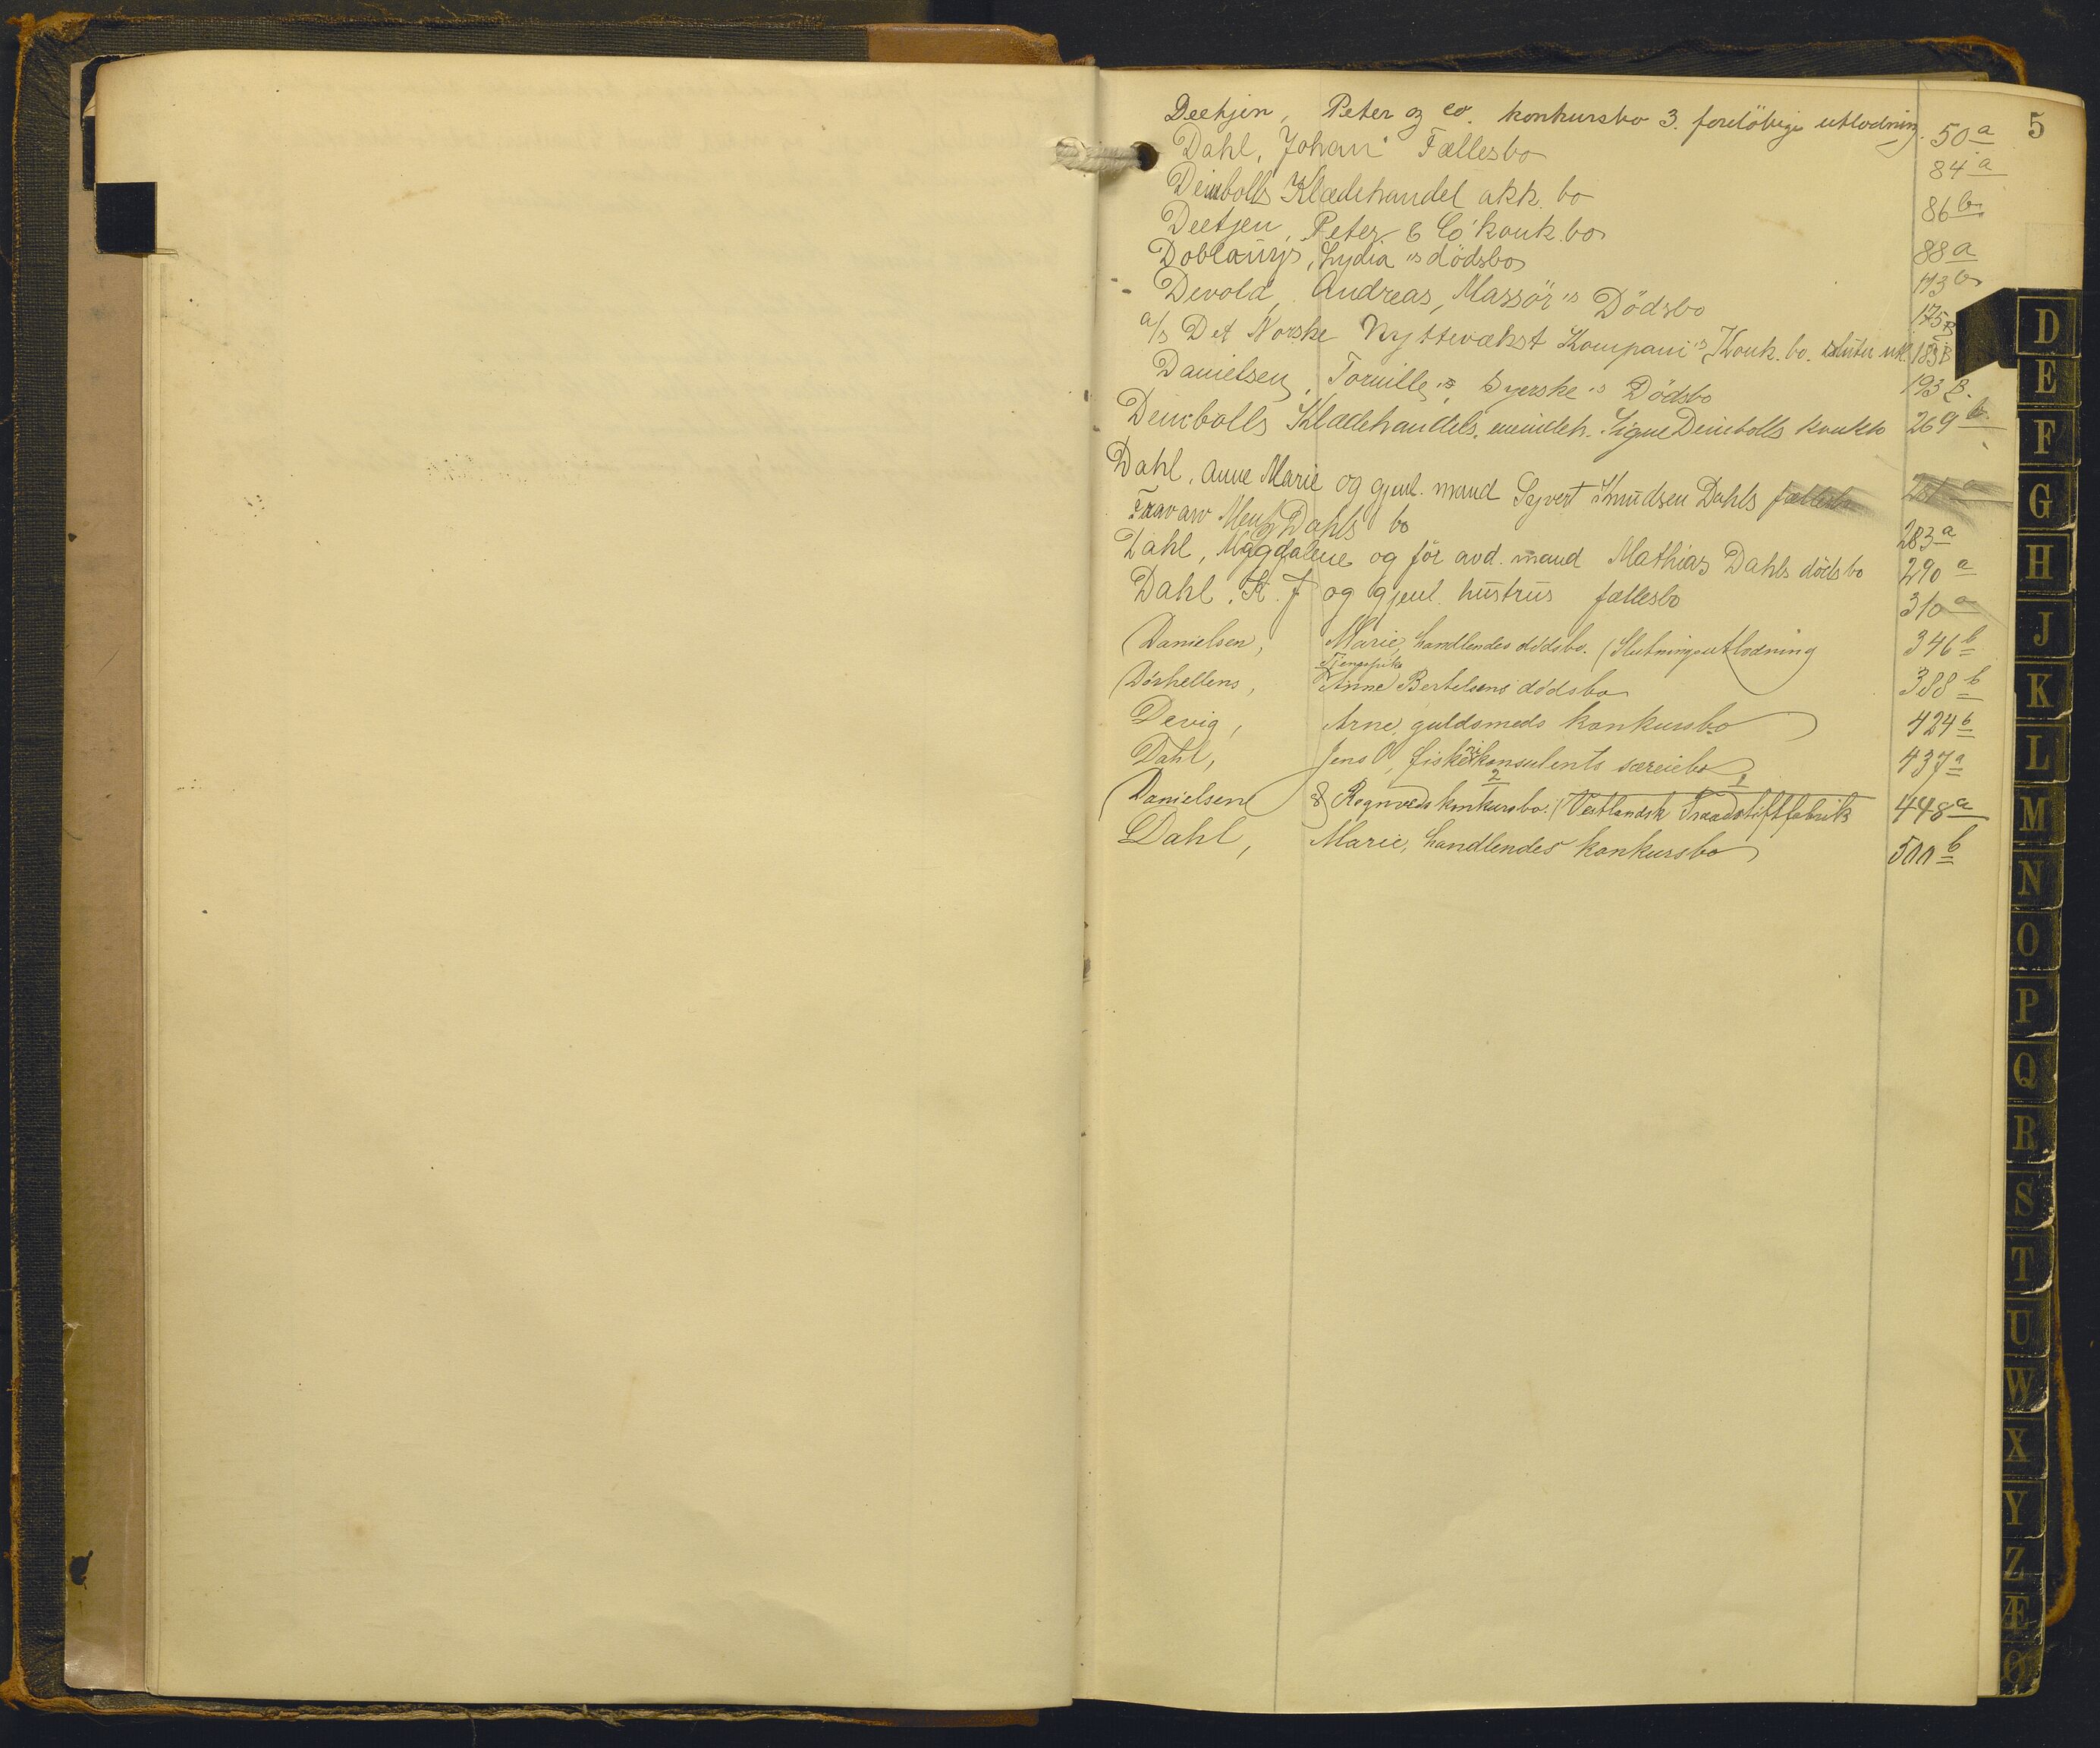 5
Deetjen, Peter og Co. konkursbo 3. foreløbige utlodning. 50 a
Dahl, Johan Fællesbo 84 a
Deinbolls Klædehandel akk. bo 86 b
Deetjen, Peter & Co konk. bo 88 a
Lydia's dödsbo 173 b
Devold, Andreas, Massör's Dödsbo 175 B
a/s Det Norske Nyttevækst Kompani's Konk. bo. 183 B
Danielsen, Syerske's Dödsbo 193 B.
Deinbolls Klædehandels, Signe Deinbolls konkbo 269 b.
Dahl, Anne Marie og gjenl. mand Syvert Knudsen Dahls
Dahls bo 283 a
Dahl, Magdalene og för avd. mand Mathias Dahls dödsbo 290 a
Dahl, K. J og gjenl. hustrus fællesbo 310 a
Danielsen, Marie, handlendes dödsbo. (Slutningsutlodning 346 b
Tjenepike
Döshellens, Anne Bertelsens dödsbo 388 b
Devig, Arne, guldsmeds konkursbo 424 b
Dahl, Jens O, fiskerikonsulents særeiebo 437 a
2 1
Danielsen & Rognveds konkursbo. (Vestlandsk Traadstiftfabrik 448 a
Dahl, Marie, handlendes konkursbo 500 b
D
E
F
G
H
J
K
L
M
N
O
P
Q
R
S
T
U
W
X
Y
Z
Æ
Ø